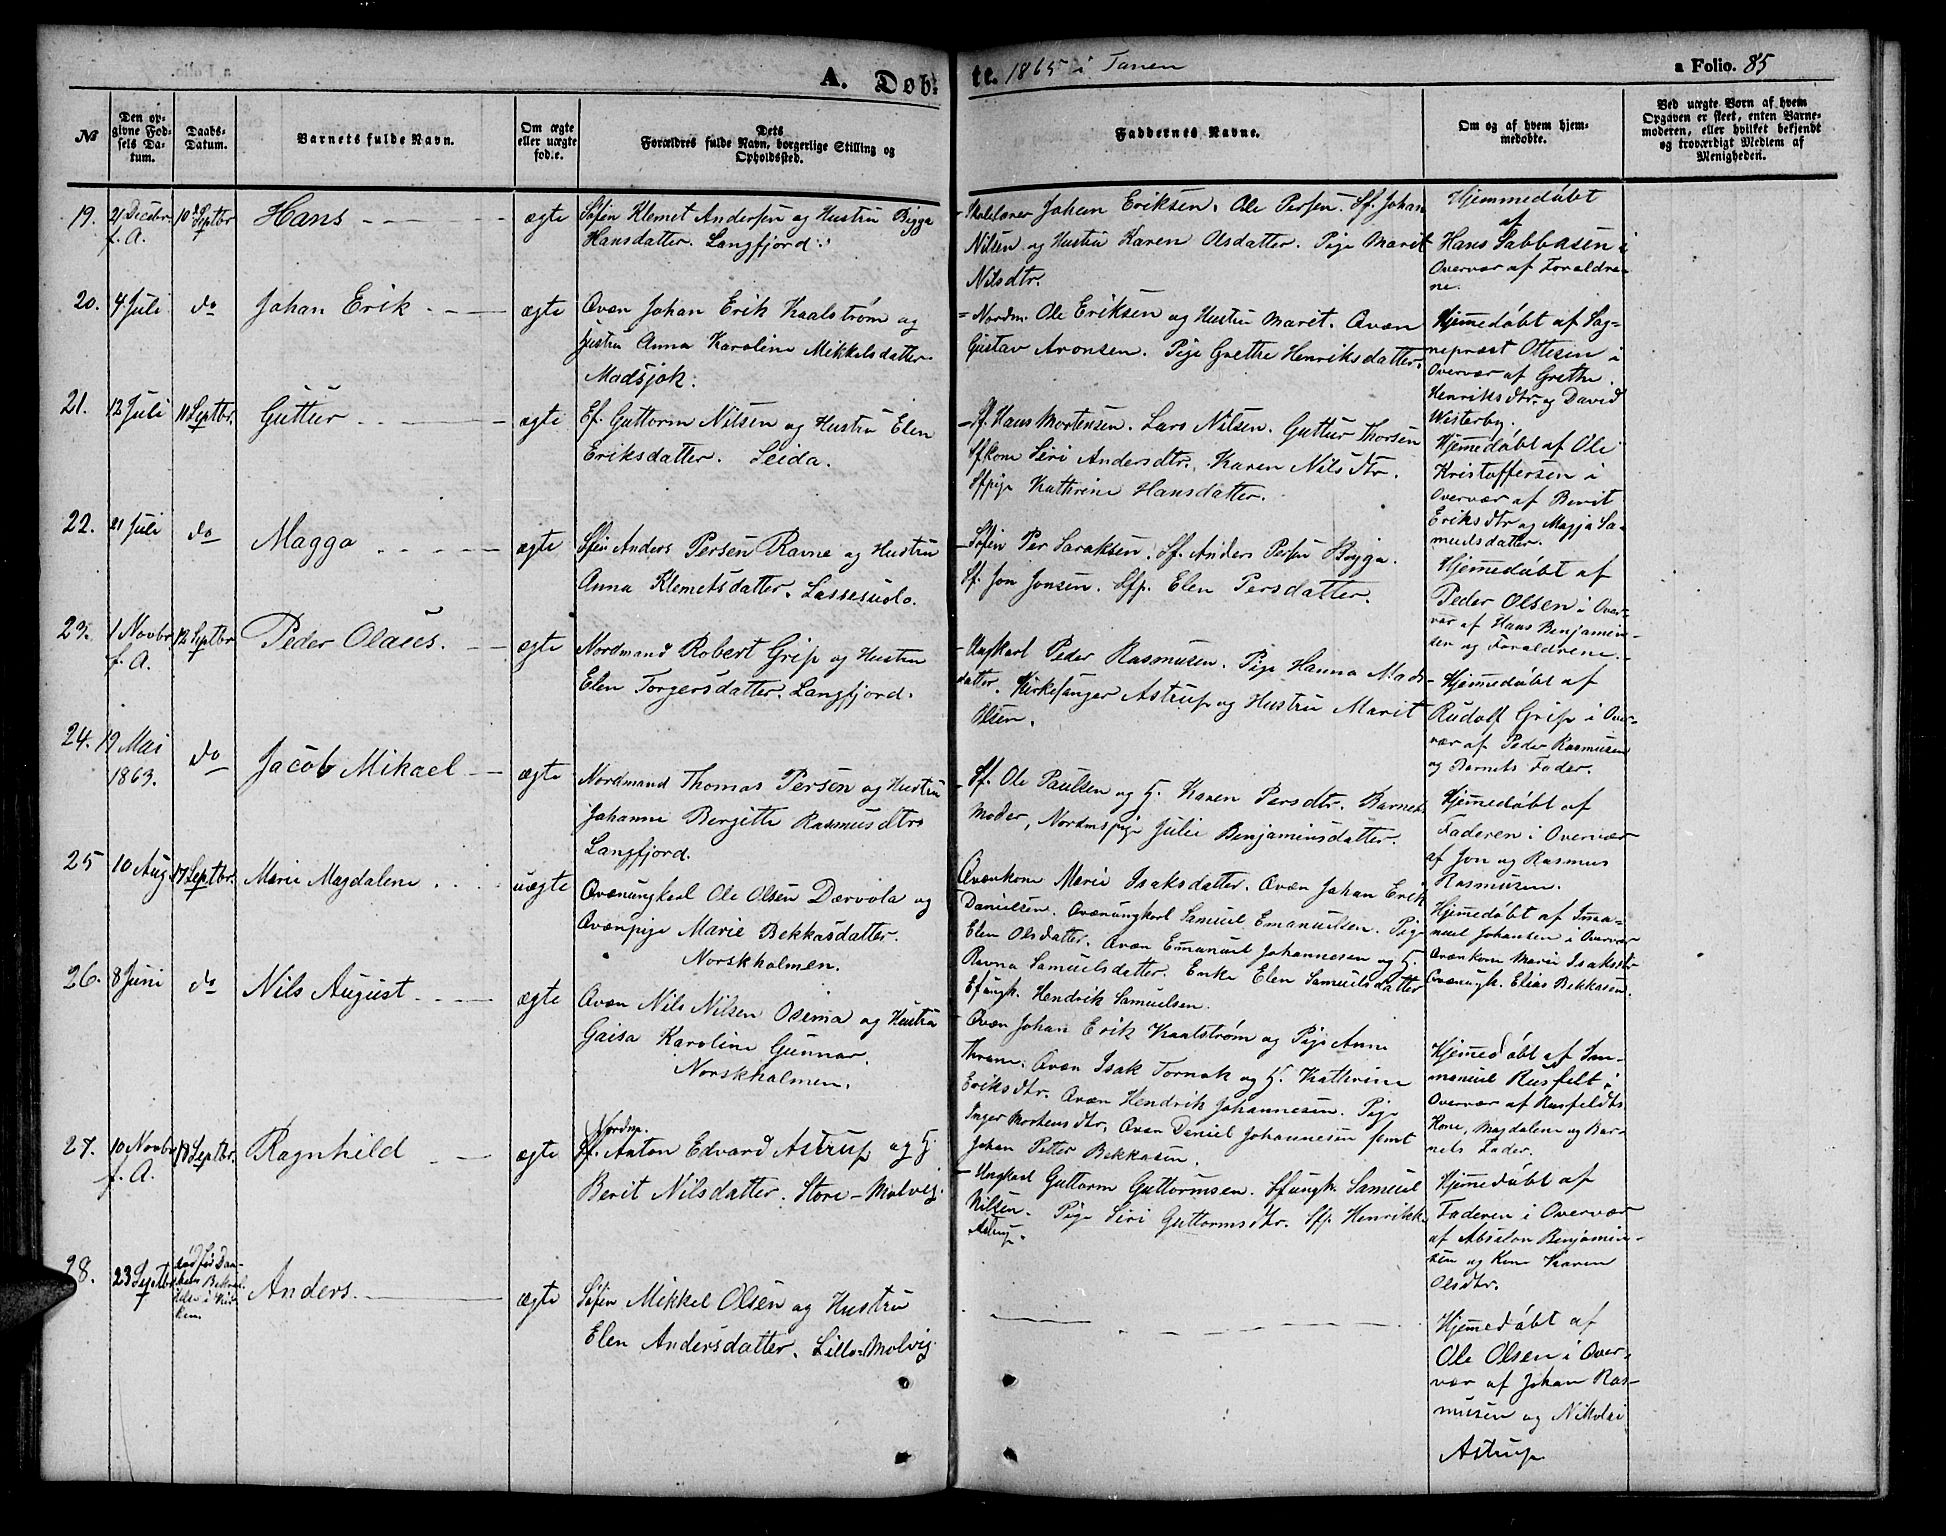 A. Døb-
te. 1865 i Tanen
a Folio. 85
No
Den op-
givne Fød-
sels Da-
tum.
Daabs-
Datum.
Barnets fulde Navn.
Om ægte
eller uægte
fød.e.
Dets
Forældres fulde Navn, borgerlige Stilling og
Opholdssted.
Faddernes Navne.
Om og af hvem hjem-
medøbte.
Ved uægte Børn af hvem
Opgaven er skeet, enten Barne-
moderen, eller hvilket bekjendt
og troværdigt Medlem af
Menigheden.
19.
21 Decebr
f. A.
10 Septbr
Hans
ægte
Søfin Klemet Andersen og Hustru Bigga
Hansdatter. Langfjord.
Skolelærer Johan Eriksen. Ole Persen. Sf. Johan
Nilsen og Hustru Karen Olsdatter. Pige Marit
Nilsdtr.
Hjemmedøbt
af
Hans Sabbasen i
Overvær af Foraldre-
ne.
20.
4 Juli
do
Johan Erik
ægte
Qvæn Johan Erik Kaalstrøm og
Hustru Anna Karoline Mikkelsdatter.
Madsjok.
Nordm. Ole Eriksen og Hustru Marit. Qvæn
Gustav Aronsen. Pige Grethe Henriksdatter.
Hjemedøbt af Sog-
nepræst Ottesen i
Overvær af Grethe
Henriksdtr. og David
Wisterby.
21.
12 Juli
11 Septbr.
Guttur
ægte
Ef. Guttorm Nilsen og Hustru Elen
Eriksdatter. Seida.
Sf. Hans Mortensen. Lars Nilsen. Guttur Thorsen
Sfkone Siri Andersdtr. Karen Nilsdtr.
Sfpige Kathrine Hansdatter.
Hjemedøbt af Ole
Kristoffersen i
Overvær af Berit
Eriksdtr og Magja Sa-
muelsdatter.
22.
21 Juli
do
Magga
ægte
Sfin Anders Persen Ravna og Hustru
Anna Klemetsdatter. Lassesuolo.
Søfin Per Saraksen. Sf. Anders Persen Bigga.
Sf. Jon Jonsen. Sfp. Elen Persdatter.
Hjemedøbt af
Peder Olsen i Over-
vær af Hans Benjamin-
sen og Foraldrene.
23.
1 Novbr
f. A.
12 Septbr
Peder Olaus.
ægte
Nordmand Robert Grip og Hustru
Elen Torgersdatter. Langfjord.
Ungkarl Peder Rasmusen. Pige Hanna Mads-
datter. Kirkesanger Astrup og Hustru Marit
Olsen.
Hjemedøbt af
Rudolf Grip i Over-
vær af Peder Rasmusen
og Barnets Fader.
24.
19 Mai
1863.
do
Jacob Mikael
ægte
Nordmand Thomas Persen og Hustru
Johanne Bergitte Rasmusdtr.
Langfjord.
Sf. Ole Paulsen og H. Karen Persdtr. Barnets
Moder, Nordmspige Julie Benjaminsdatter.
Hjemedøbt af
Faderen i Overvær
af Jon og Rasmus
Rasmusen.
25
10 Aug
17 Septbr.
Marie Magdalene
uægte
Qvænungkarl Ole Olsen Dærvola og
Qvænpige Marie Bekkasdatter.
Norskholmen.
Qvænkone Marie Isaksdatter. Qvæn Johan Erik
Danielsen. Qvænungkarl Samuel Emanuelsen. Pige
Elen Olsdatter. Qvæn Emanuel Johannesen og H.
Ravna Samuelsdatter. Enke Elen Samuelsdatter
Efungk. Hendrik Samuelsen.
Hjemedøbt af Ima-
nuel Johansen i Overvær
Qvænkone Marie Isaksdtr
Qvænungk. Elias Bekkasen.
26.
8 Juni
do
Nils August
ægte
Qvæn Nils Nilsen Osima og Hustru
Gaisa Karoline Gunnar.
Norskholmen.
Qvæn Johan Erik Kaalstrøm og Pige Anne
Thrane. Qvæn Isak Tornak og H. Kathrine
Eriksdtr. Qvæn Hendrik Johannesen. Pige
Inger Mortensdtr. Qvæn Daniel Johannesen samt
Johan Petter Bekkasen.
Hjemedøbt af Im-
manuel Rusfelt i
Overvær af Rusfeldts
Kone, Magdalene og Bar-
nets Fader.
27.
10 Novbr
f. A.
18 Septbr.
Ragnhild
ægte
Nordm.
Sf. Anton Edvard Astrup og H.
Berit Nilsdatter. Store-Molvig.
Ungkarl Guttorm Guttormsen. Sfungk. Samuel
Nilsen. Pige Siri Guttormsdtr. Sfp. Henrikke
Astrup.
Hjemedøbt af
Faderen i Overvær
af Absalon Benjamin-
sen og Kone Karen
Olsdtr.
28.
23 Septbr
død før Daa-
bens Bekræf-
telse i Kir-
ken.
Anders.
ægte
Søfin Mikkel Olsen og Hustru
Elen Andersdatter. Lille-Molvig.
Hjemedøbt af
Ole Olsen i Over-
vær af Johan Ras-
musen og Nikolai
Astrup